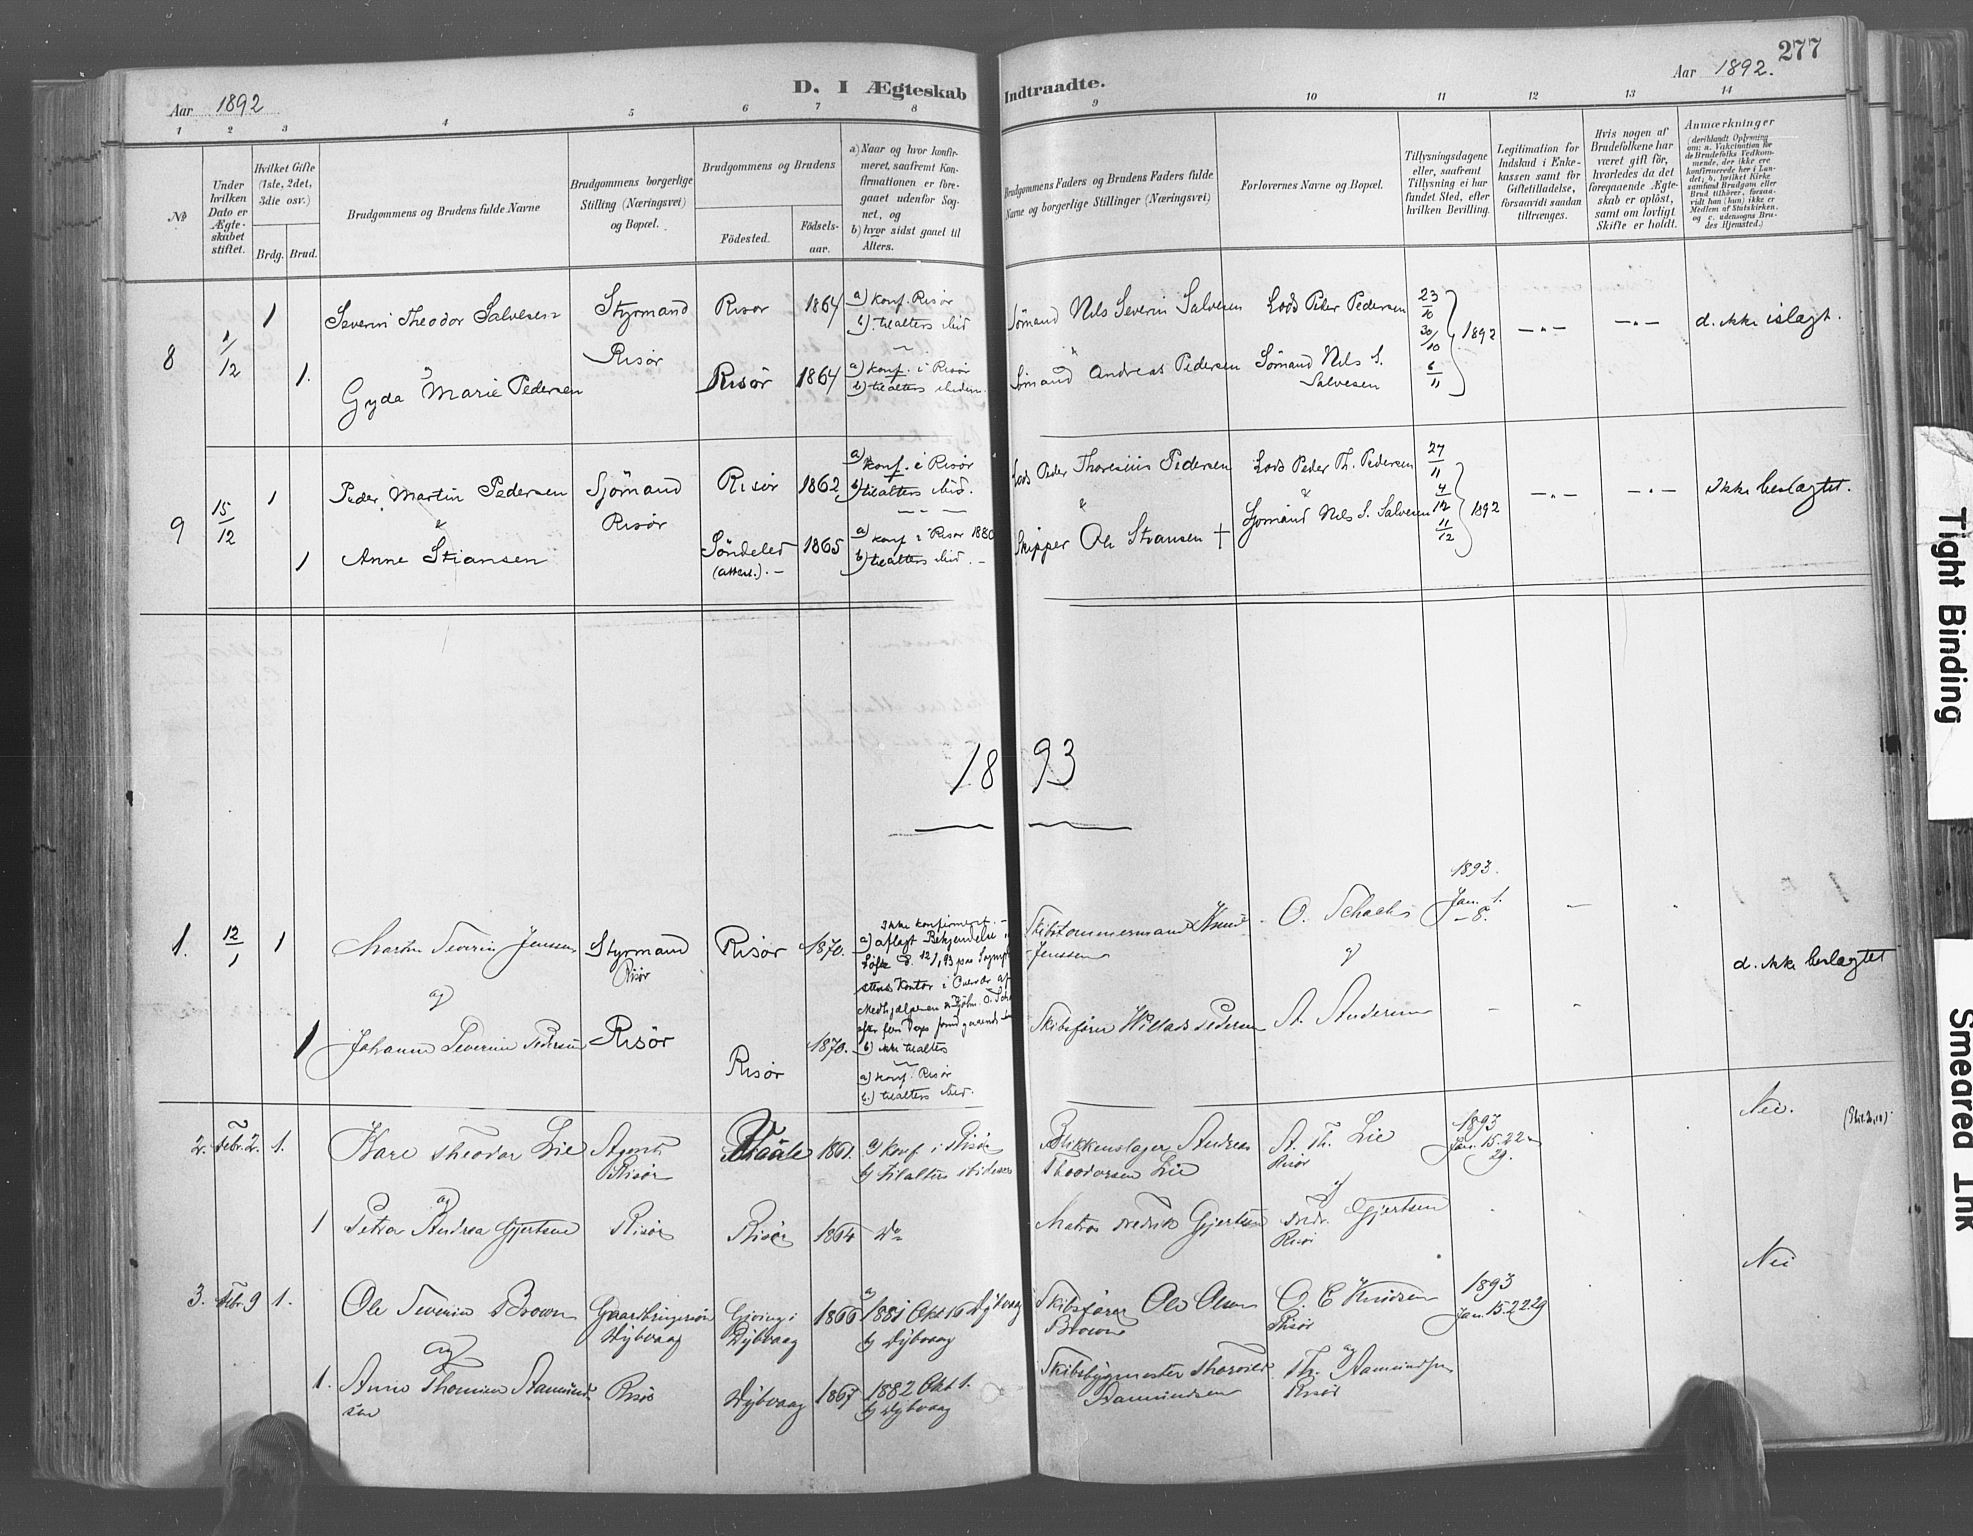 277
D. I Ægteskab Indtraadte.
Aar 1892
Aar 1892.
1 2 3 4 5 6 7 8 9 10 11 12 13 14
No
Under hvilken Dato er Ægteskabet stiftet.
Hvilket Gifte (1ste, 2det, 3die osv.)
Brdg. Brud.
Brudgommens og Brudens fulde Navne
Brudgommens borgerlige Stilling (Næringsvei) og Bopæl.
Brudgommens og Brudens
Födested.
Födselsaar.
a) Naar og hvor konfirmeret, saafremt Konfirmationen er foregaaet udenfor Sognet, og
b) hvor sidst gaaet til Alters.
Brudgommens Faders og Brudens Faders fulde Navne og borgerlige Stillinger (Næringsvei)
Forlovernes Navne og Bopæl.
Tillysningsdagene eller, saafremt Tillysning ei har fundet Sted, efter hvilken Bevilling.
Legitimation for Indskud i Enkekassen samt for Giftetilladelse, forsaavidt saadan tiltrænges.
Hvis nogen af Brudefolkene har været gift för, hvorledes da det foregaaende Ægteskab er oplöst, samt om lovligt Skifte er holdt.
Anmærkninger
(deriblandt Oplysning om: a. Vakcination for de Brudefolks Vedkommende, der ikke ere konfirmerede her i Landet; b. hvilket Kirkesamfund Brudgom eller Brud tilhörer, forsaavidt han (hun) ikke er Medlem af Statskirken, og c. udensogns Brudes Hjemsted.)
8
1/12
1
Severin Theodor Salvesen
Styrmand
Risør
Risør
1864
a) konf. Risør
b) tilalters
Sømand Nils Severin Salvesen
Lods Peder Pedersen
23/10 30/10 6/11 1892
d. ikke islægt.
1.
Gyda Marie Pedersen
Risør
1864
a) konf. i Risør
b) tilalters
Sømand Andreas Pedersen
Sømand Nils S. Salvesen
9
15/12
1
Peder Martin Pedersen
&
Sjömand
Risør
Risør
1862
a) konf. i Risør
b) tilalters
Lods Peder Thoresius Pedersen
&
Lods Peder Th. Pedersen
&
27/11 4/12 11/12 1892
ikke beslægtet.
1
Anne Stiansen
Söndeled
(attest.).-
1865
a) konf. i Risør 1880
b) tilalters
Skipper Ole Stiansen †
Sjömand Nils S. Salvesen
1893
1.
12/1
1
Martin Severin Jenssen
og
Styrmand
Risør
Risør
1870.
Ikke konfirmeret.
a) aflagt Bekjendelse
b) ikke tilalters
Skibstømmermand Knud Jenssen
O. Schach
og
1893.
Jan. 1.
- 8.
d. ikke beslægtet
1
Johanne Severine Pedersen
Risør
Risør
1870.
a) konf. Risør
b.) tilalters
Skibsfører Willads Pedersen
A. Andersen
2.
Febr. 2.
1.
Theodor Lie
og
Agent
Risør
1861.
a) konf i Risør
b) tilalters
Blikkenslager Andreas Theodorsen Lie
A. Th. Lie
Risør
og
1893
Jan. 15. 22 29.
Nei.
1
Petra Andrea Gjertsen
Risør
Risør
1864
Do
Matros Fredrik Gjertsen
Fredr. Gjertsen
Risør
3.
Febr. 9
1.
Ole Severin Brown
og
Dybvaag
Gjeving i Dybvaag
1866
a) 1881 Okt 16 Dybvaag
b) Dybvaag
Skibsfører Ole Olsen Brown
O. E Knudsen
Risør
og
1893
Jan. 15. 22. 29
Nei
1.
Anne Thomine Aamundsen
Risør
Dybvaag
1867
1882 Okt 1.
b) Dybvaag
Skibsbygmester Thorvald Aamundsen
Th. Aamundsen
Risør
Tight Binding
Smeared Ink